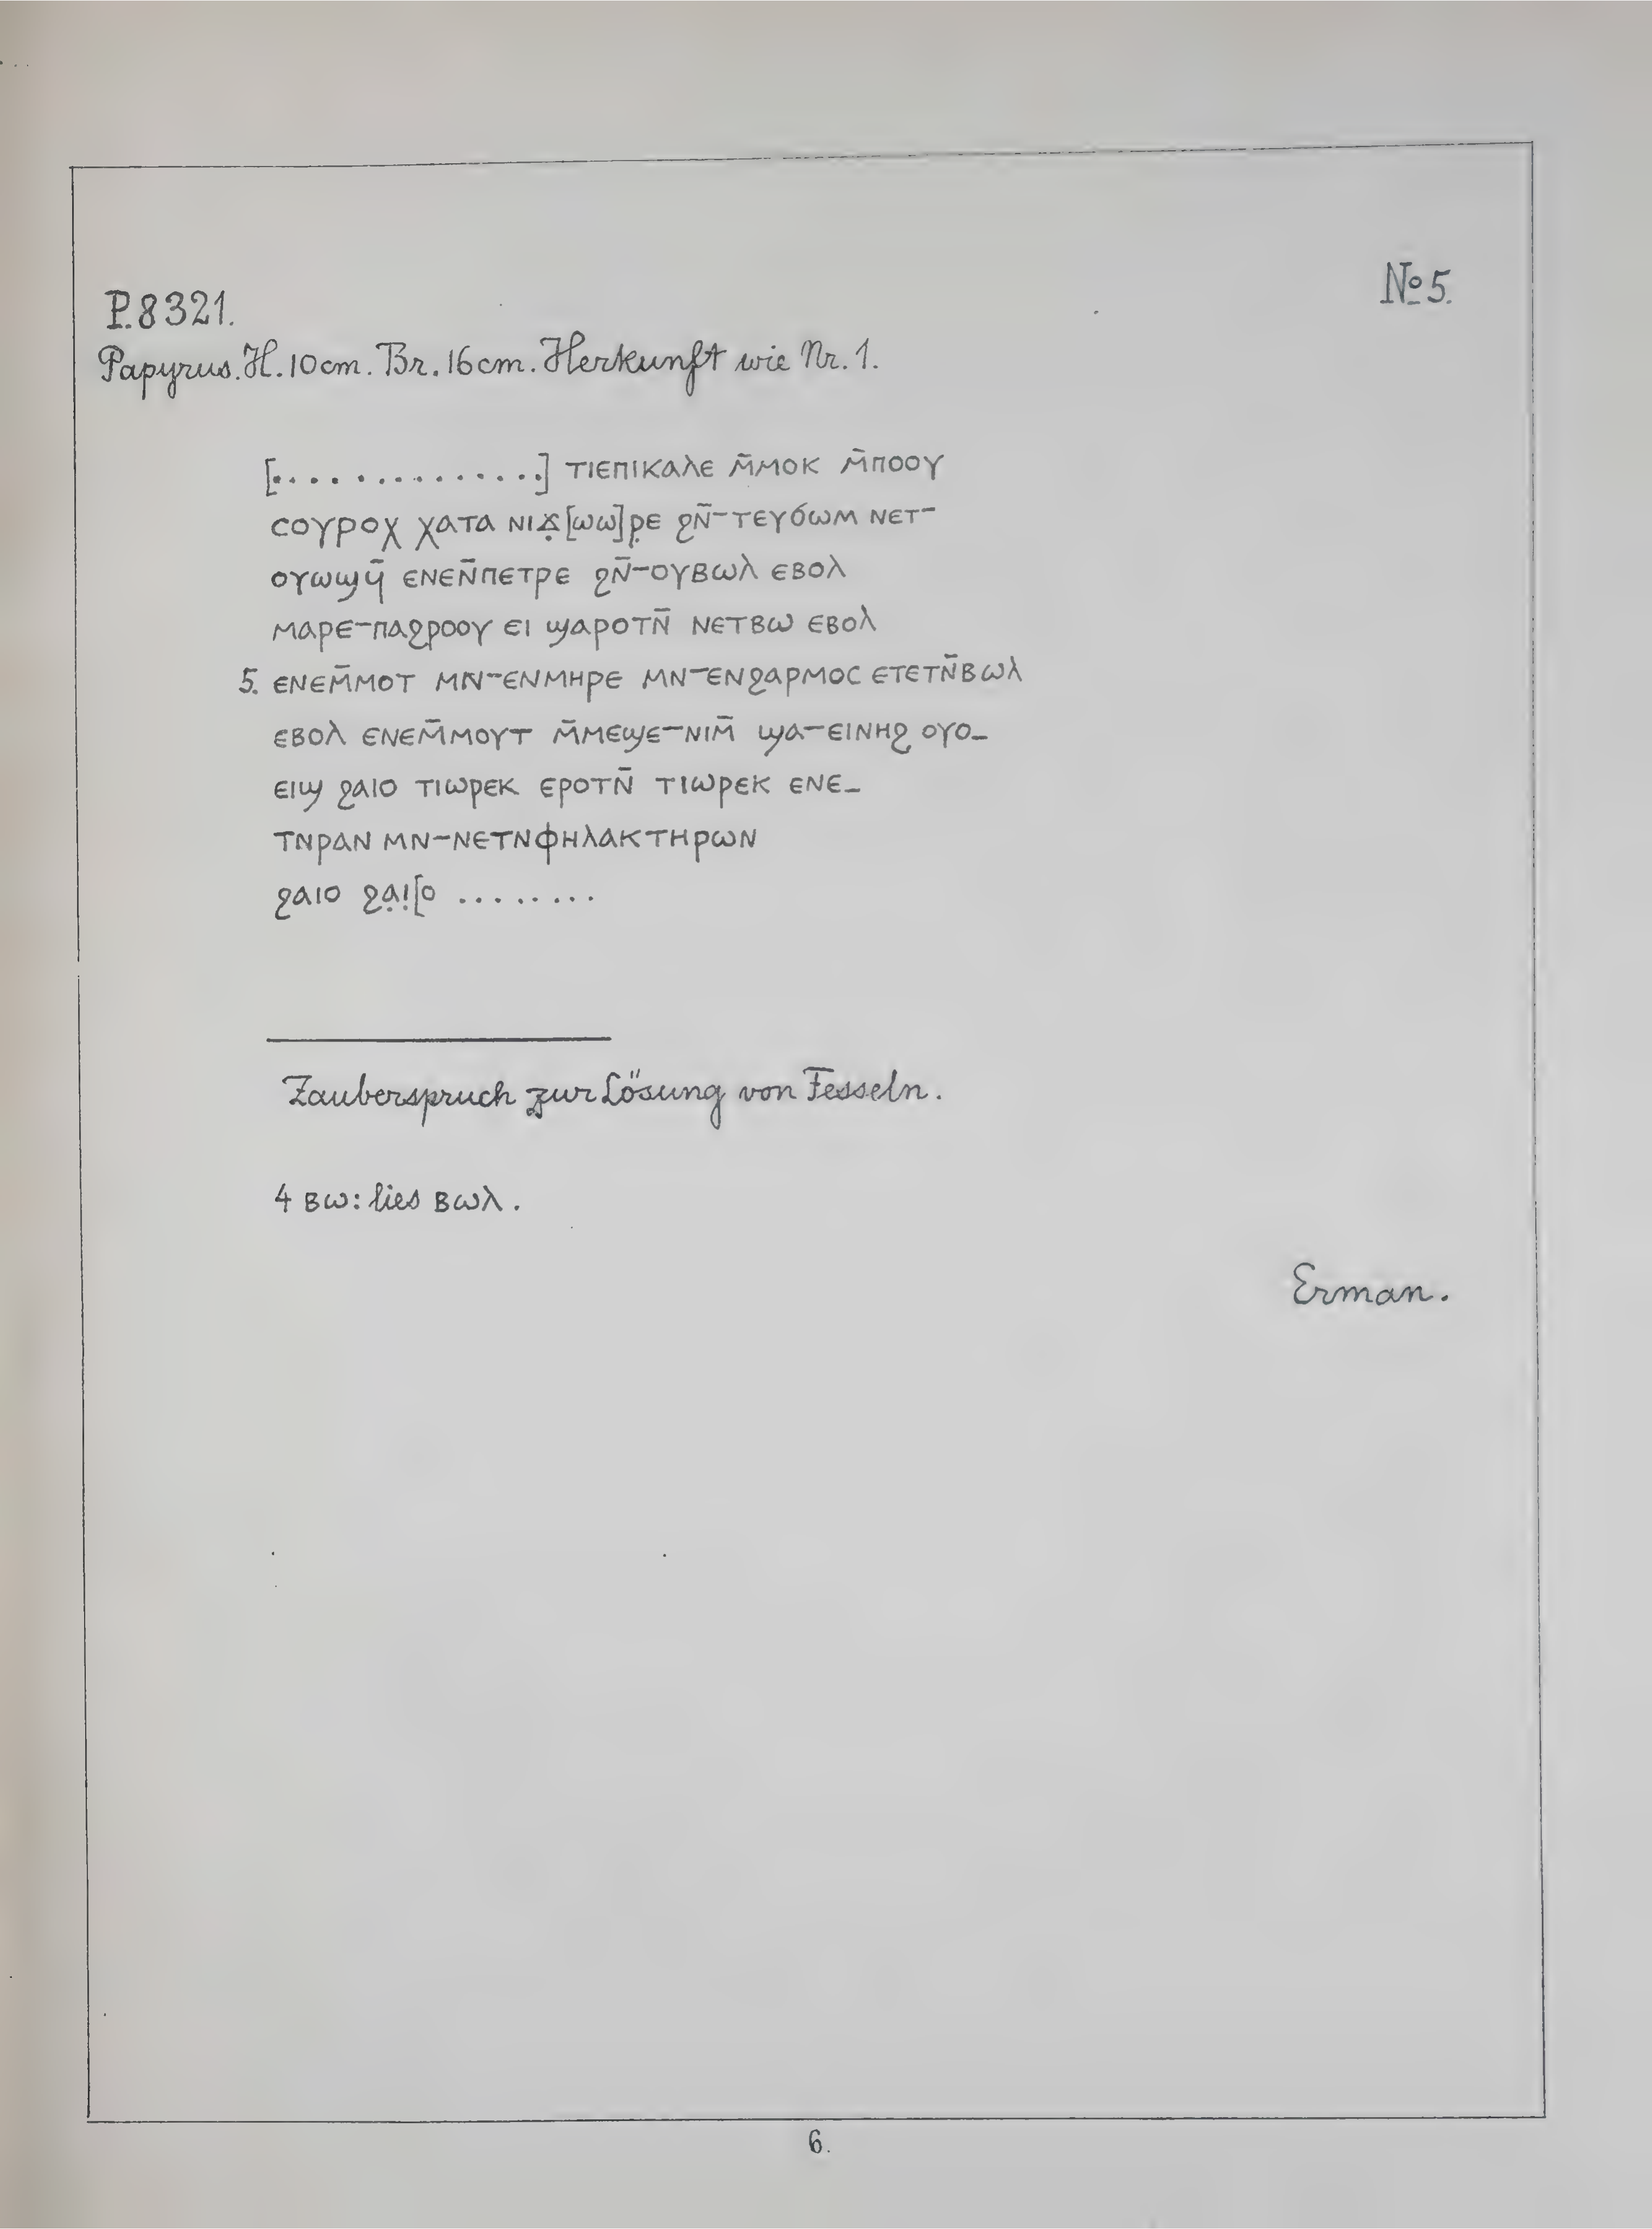 P.8321.
№5.
Papyrus. H. 10cm. Br. 16cm. Herkunft wie Nr. 1.
[..............] ⲧⲓⲉⲡⲓⲕⲁⲗⲉ ⲙ̄ⲙⲟⲕ ⲙ̄ⲡⲟⲟⲩ
ⲥⲟⲩⲣⲟⲭ ⲭⲁⲧⲁ ⲛⲓϫ̣[ⲱⲱ]ⲣ̣ⲉ ϩⲛ̄-ⲧⲉⲩϭⲱⲙ ⲛⲉⲧ-
ⲟⲩⲱϣϥ̄ ⲉⲛⲉⲛ̄ⲡⲉⲧⲣⲉ ϩⲛ̄-ⲟⲩⲃⲱⲗ ⲉⲃⲟⲗ
ⲙⲁⲣⲉ-ⲡⲁϩⲣⲟⲟⲩ ⲉⲓ ϣⲁⲣⲟⲧⲛ̄ ⲛⲉⲧⲃⲱ ⲉⲃⲟⲗ
5. ⲉⲛⲉⲙ̄ⲙⲟⲧ ⲙⲛ-ⲉⲛⲙⲏⲣⲉ ⲙⲛ-ⲉⲛϩⲁⲣⲙⲟⲥ ⲉⲧⲉⲧⲛ̄ⲃⲱⲗ
ⲉⲃⲟⲗ ⲉⲛⲉⲙ̄ⲙⲟⲩⲧ ⲙ̄ⲙⲉϣⲉ-ⲛⲓⲙ̄ ϣⲁ-ⲉⲓⲛⲏϩ ⲟⲩⲟ-
ⲉⲓϣ ϩⲁⲓⲟ ⲧⲓⲱⲣⲉⲕ ⲉⲣⲟⲧⲛ̄ ⲧⲓⲱⲣⲉⲕ ⲉⲛⲉ-
ⲧⲛⲣⲁⲛ ⲙⲛ-ⲛⲉⲧⲛⲫⲏⲗⲁⲕⲧⲏⲣⲱⲛ
ϩⲁⲓⲟ ϩⲁ̣ⲓ̣[ⲟ ........
Zauberspruch zur Lösung von Fesseln.
4 ⲃⲱ: lies ⲃⲱⲗ.
Erman.
6.